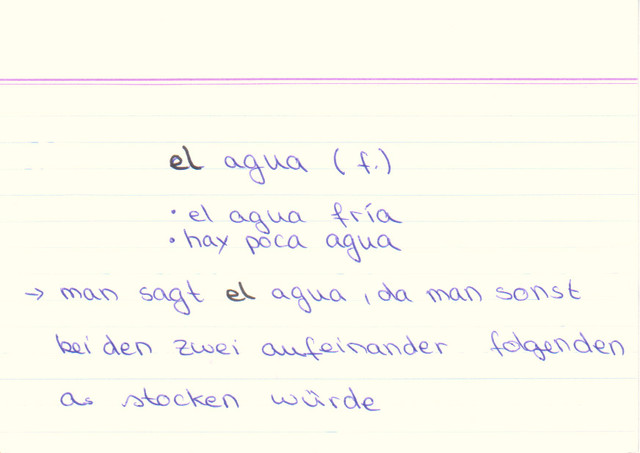 el agua (f.)
• el agua fría
• hay poca agua
→ man sagt el agua, da man sonst
bei den zwei aufeinander folgenden
as stocken würde